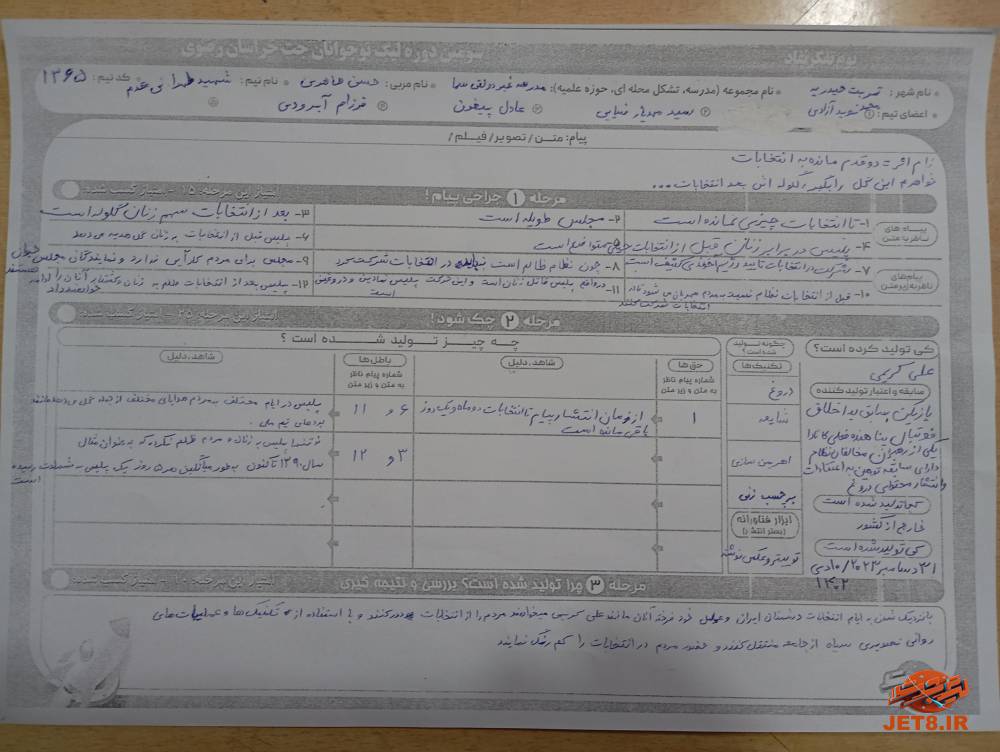 بوم تفکر نقاد
سومین دوره لیگ نوجوانان جت خراسان رضوی
نام شهر: تربت حیدریه نام مجموعه (مدرسه، تشکل محله ای، حوزه علمیه): مدرسه غیردولتی سما نام مربی: حسن طاهری نام تیم: شهید طهرانی مقدم کد تیم: ۱۳۶۵
اعضای تیم: ① آزادی ② سید مهدیار ضیایی ③ عادل پیغون ④ فرزام آبرودی
پیام: متن/ تصویر/ فیلم/
دو قدم مانده به انتخابات
خواهرم این گل را بگیر، گلوله اش بعد انتخابات...
مرحله ۱ جراحی پیام!
امتیاز این مرحله: ۱۵ - امتیاز کسب شده:
پیام های ناظر به متن
۱- تا انتخابات چیزی نمانده است
۲- مجلس طویله است
۳- بعد از انتخابات سهم زنان گلوله است
۴- پلیس در برابر زنان قبل از انتخابات
۶- پلیس قبل از انتخابات به زنان گل هدیه می دهد
پیام‌های ناظر به زیر متن
۷- شرکت در انتخابات تایید رژیم آخوندی کثیف است
۸- چون نظام ظالم است نباید در انتخابات شرکت کرد
۹- مجلس برای مردم کارآیی ندارد و نمایندگانی مجلس
۱۰- قبل از انتخابات نظام نسبت به مردم مهربان می شود تا در انتخابات شرکت کنند
۱۱- در واقع پلیس قاتل زنان است و این حرکت پلیس نمادین و دروغین است
۱۲- پلیس بعد از انتخابات ظلم به زنان و کشتار آنان را ادامه خواهند داد
مرحله ۲ چک شود!
امتیاز این مرحله: ۲۵ - امتیاز کسب شده:
کی تولید کرده است؟
علی کریمی
سابقه و اعتبار تولید کننده
بازیکن سابق بد اخلاق
فوتبال پناهنده فعلی کانادا
یکی از رهبران مخالفان نظام
دارای سابقه توهین به اعتقادات
و انتشار محتوای دروغ
کجا تولید شده است
خارج از کشور
کی تولید شده است
۳۱ دسامبر ۲۰۲۳/۱۰ دی
۱۴۰۲
چگونه تولید شده است؟
تکنیک‌ها
دروغ
شایعه
اهریمن سازی
برچسب زنی
ابزار فناورانه (بستر انتشار)
توییتر و عکس نوشته
چه چیز تولید شده است ؟
حق‌ها
شماره پیام ناظر به متن و زیر متن
شاهد، دلیل
باطل‌ها
شماره پیام ناظر به متن و زیر متن
شاهد، دلیل
۱
از زمان انتشار پیام تا انتخابات دو ماه و یک روز
باقی مانده است
۶ و ۱۱
پلیس در ایام مختلف به مردم هدایای مختلف از جمله گل می دهد مانند
بردهای تیم ملی
۳ و ۱۲
نه تنها پلیس به زنان و مردم ظلم نکرده که به عنوان مثال
سال ۱۳۹۰ تاکنون به طور میانگین هر ۵ روز یک پلیس به شهادت رسیده
است
مرحله ۳ چرا تولید شده است؟ بررسی و نتیجه گیری
امتیاز این مرحله: ۱۰ - امتیاز کسب شده:
با نزدیک شدن به ایام انتخابات دشمنان ایران و عوامل خود فروخته آنان مانند علی کریمی میخواهند مردم را از انتخابات دور کنند و با استفاده از تکنیک ها و عملیات های
روانی تصویری سیاه از جامعه منتقل کنند و حضور مردم در انتخابات را کم رنگ نمایند
JET8.IR